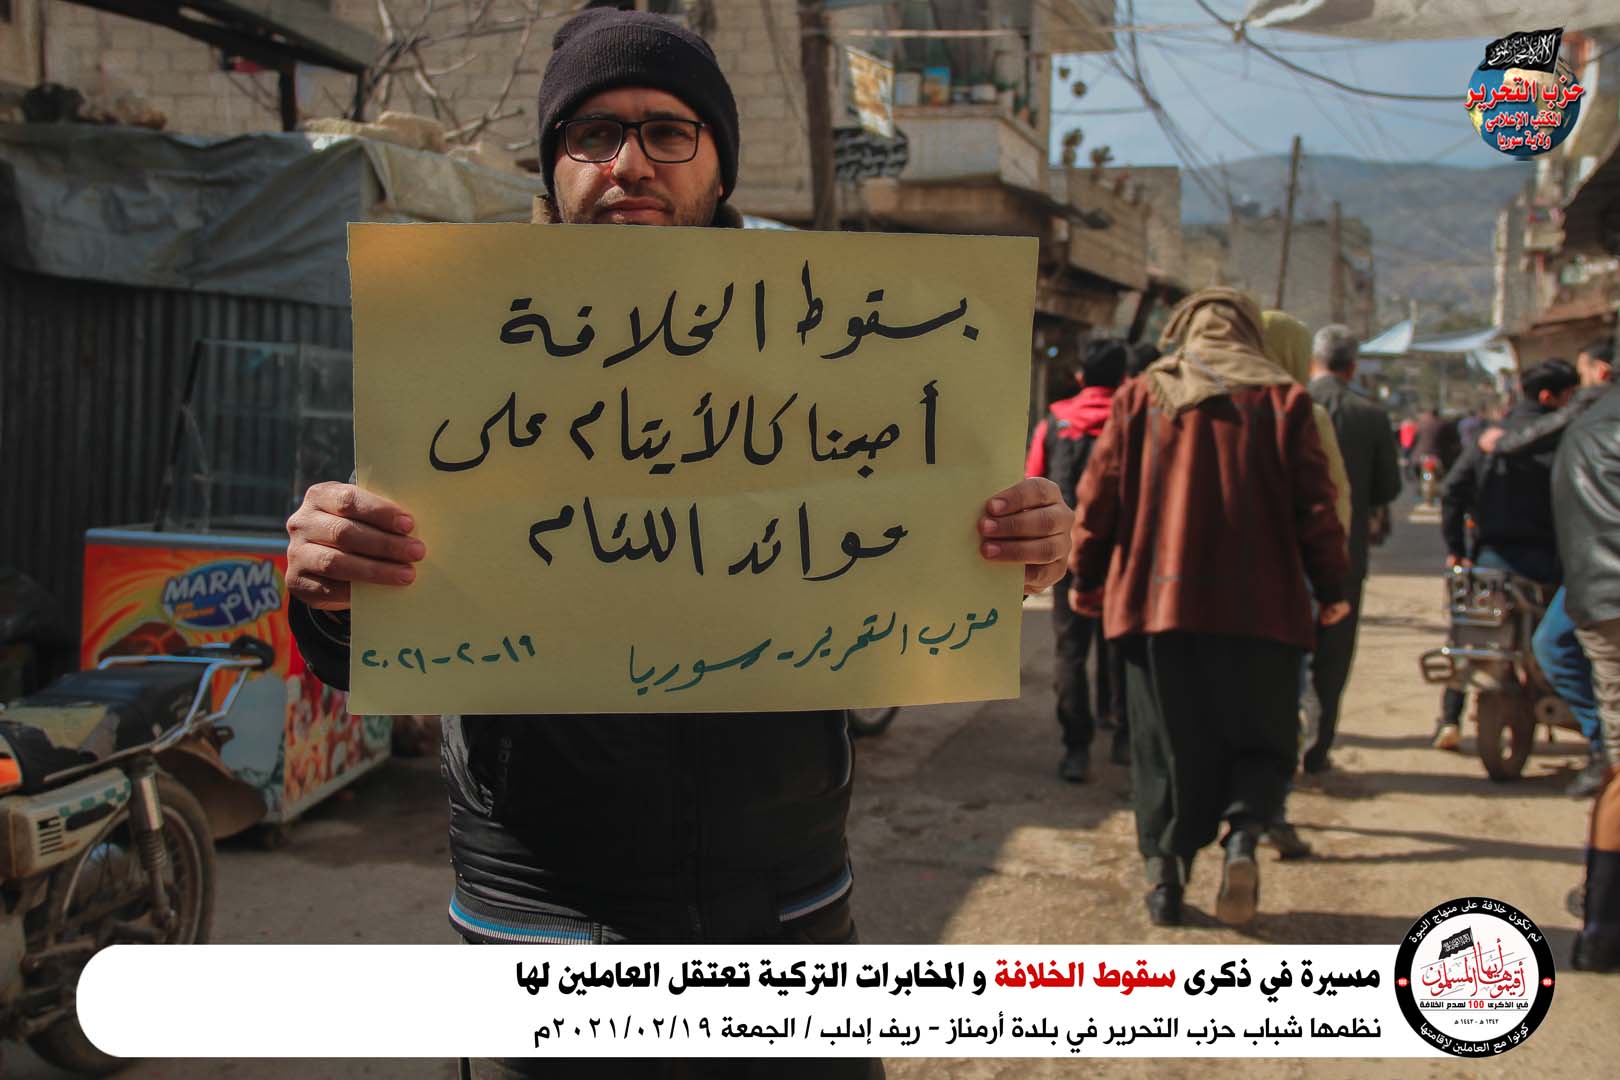 لا إله إلا الله محمد رسول الله
حزب التحرير
المكتب الإعلامي
ولاية سوريا
بسقوط الخلافة
أصبحنا كالأيتام على
موائد اللئام
حزب التحرير - سوريا
١٩-٢-٢٠٢١
MARAM
مرام
مسيرة في ذكرى سقوط الخلافة و المخابرات التركية تعتقل العاملين لها
نظمها شباب حزب التحرير في بلدة أرمناز - ريف إدلب / الجمعة ٢٠٢١/٠٢/١٩م
ثم تكون خلافة على منهاج النبوة
أقيموها أيها المسلمون
في الذكرى 100 لهدم الخلافة
١٣٤٢ هـ - ١٤٤٢ هـ
كونوا مع العاملين لإقامتها